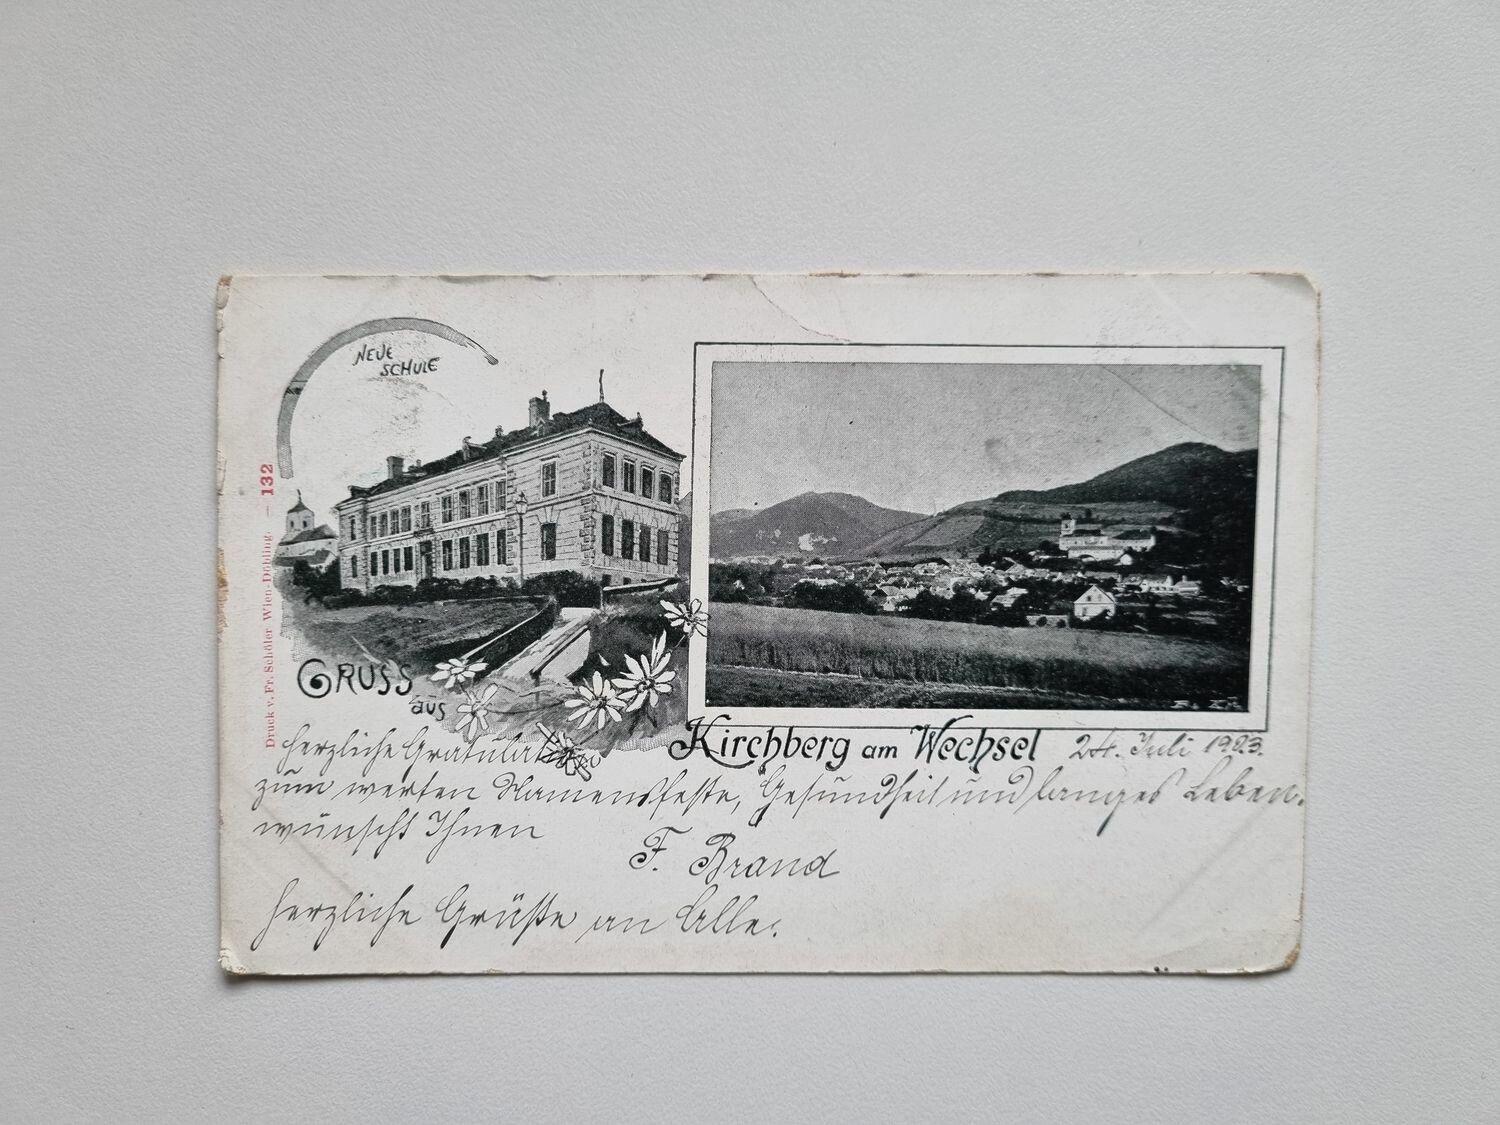 NEUE
SCHULE
Druck v. Fr. Schöler Wien-Döbling. — 132
GRUSS
aus
Kirchberg am Wechsel 24. Juli 1903.
herzliche Gratulation
zum werten Namensfeste, Gesundheit und langes Leben.
wünscht Ihnen
F. Brand
herzliche Grüße an Alle.